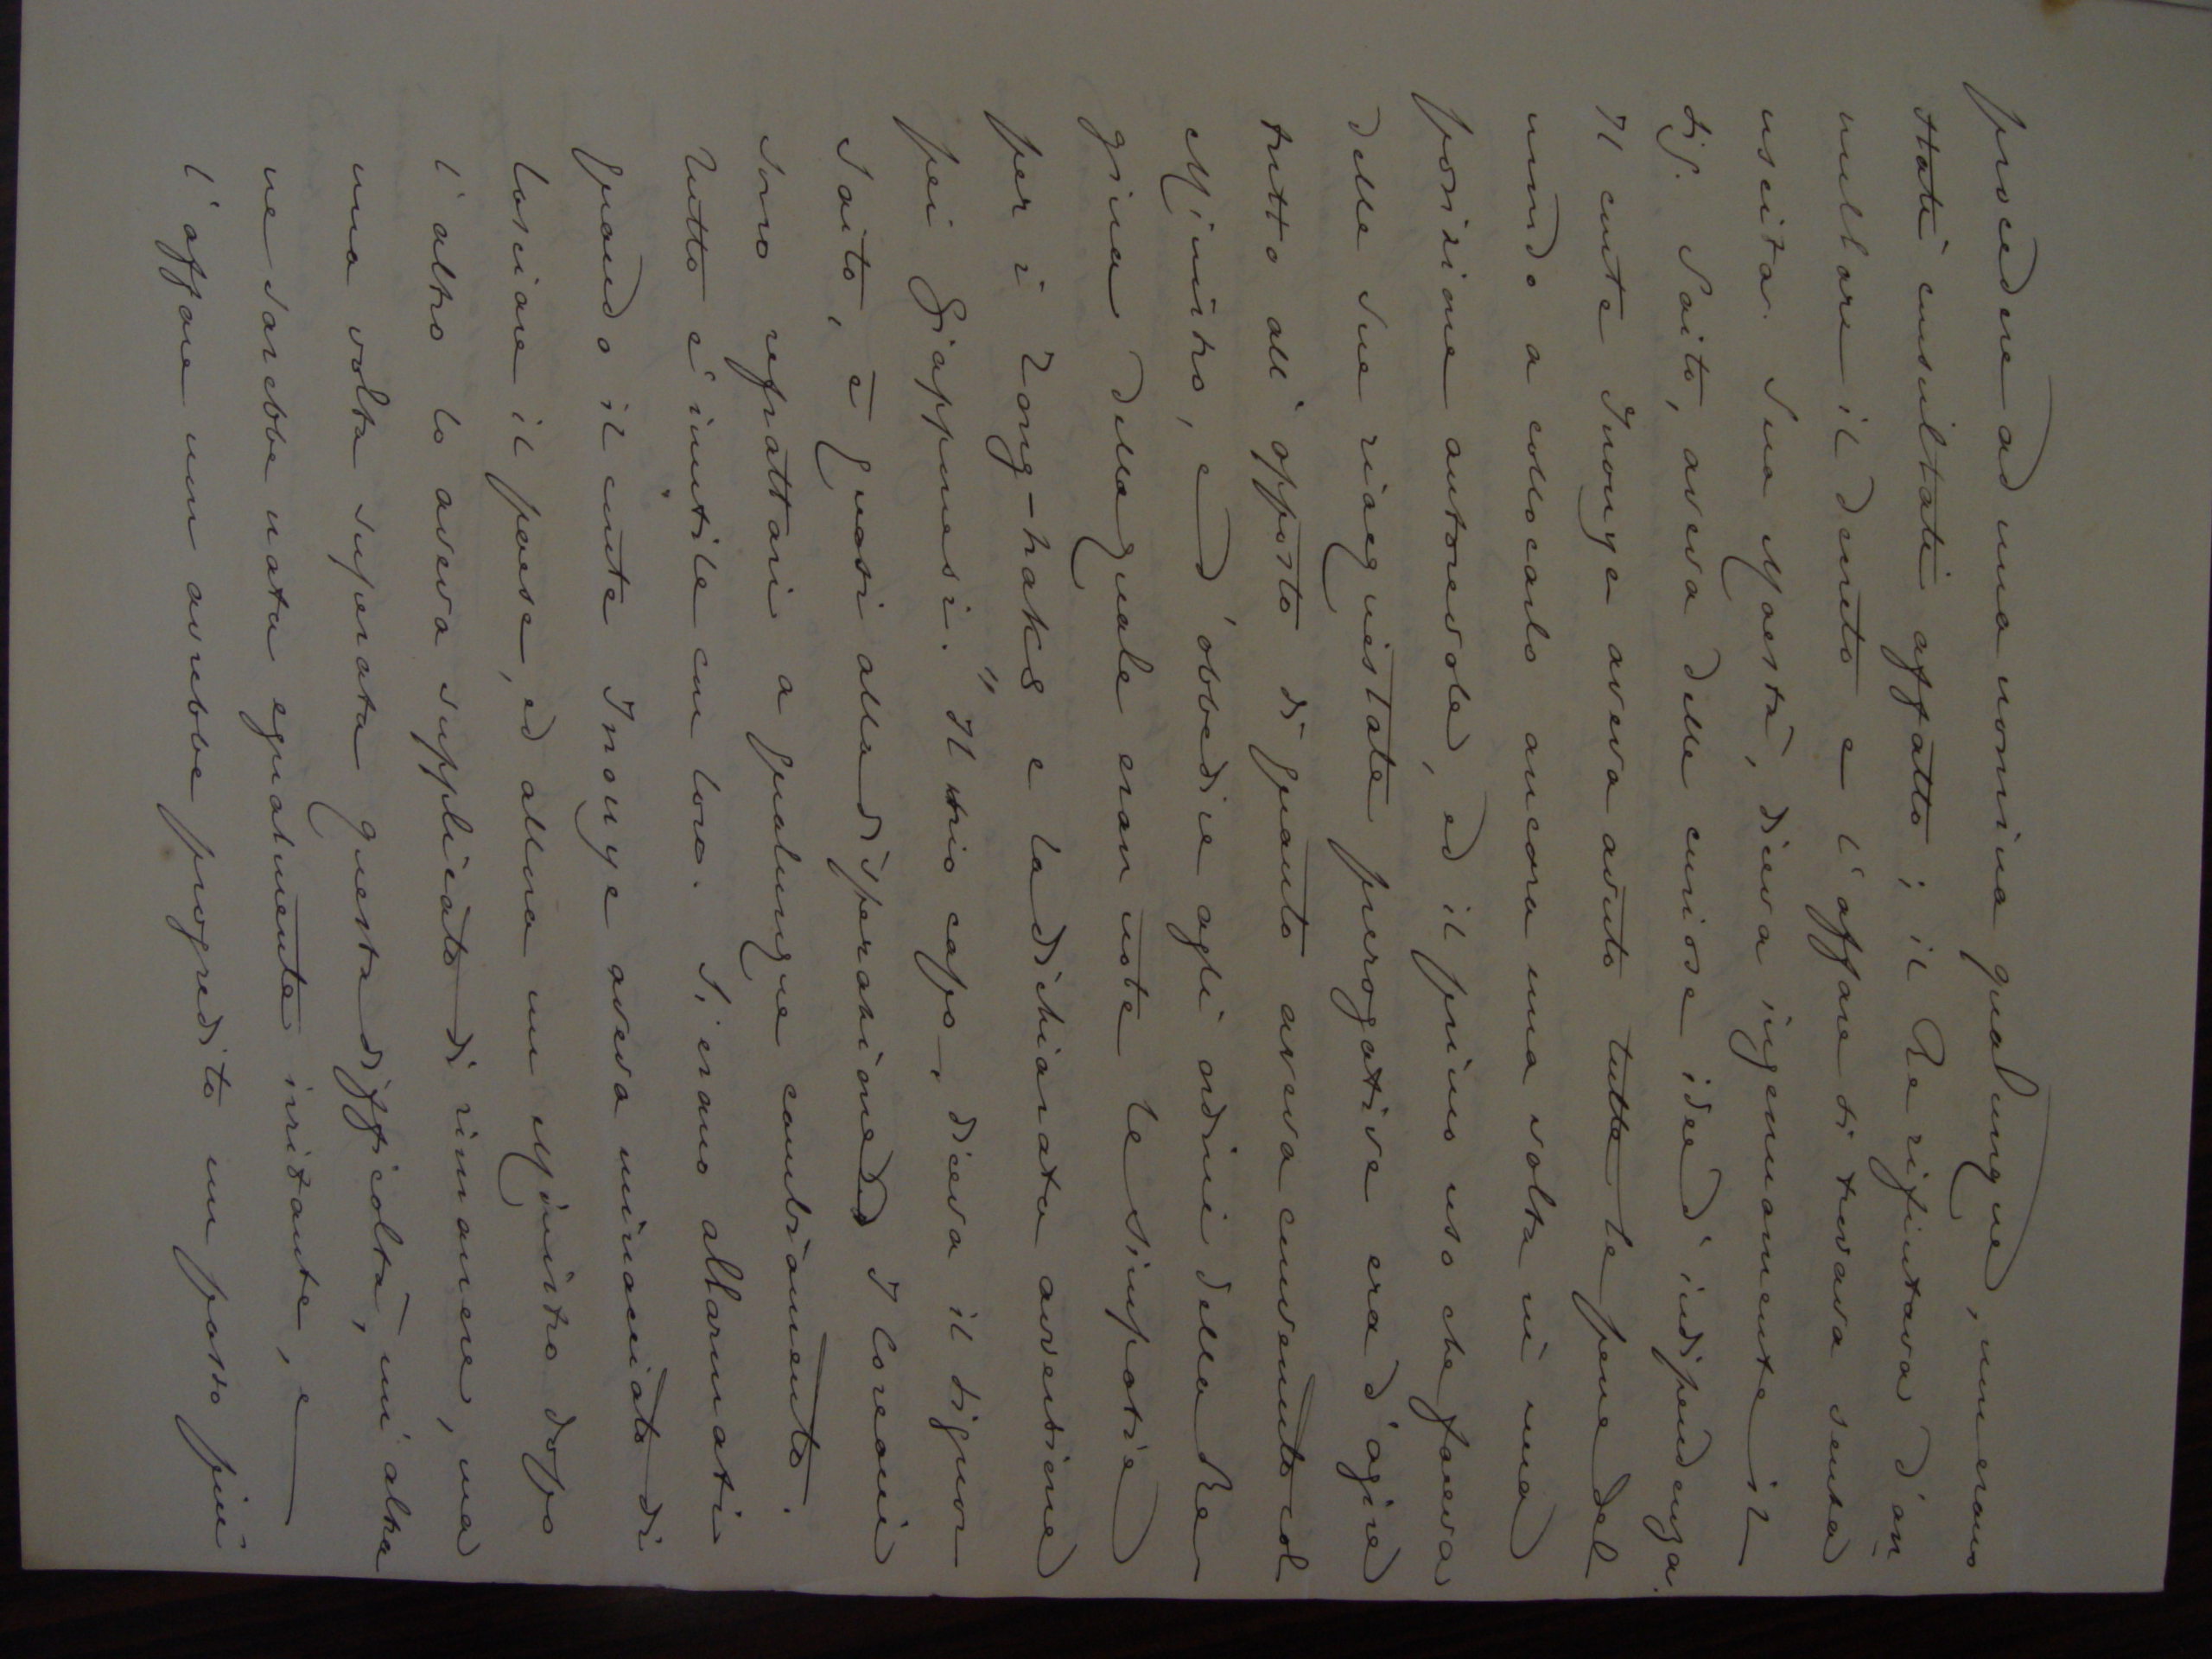 procedere ad una nomina qualunque, non erano
stati consultati affatto; il Re rifiutava d'an
nullare il decreto e l'affare si trovava senza
uscita. Sua Maestà, diceva ingenuamente il
sig. Saito, aveva delle curiose idee d'indipendenza.
Il conte Inouye aveva avuto tutte le pene del
mondo a collocarlo ancora una volta in una
posizione autorevole, ed il primo uso che faceva
delle sue riacquistate prerogative era d'agire
tutto all'opposto di quanto aveva convenuto col
Ministro, e d'obbedire agli ordini della Re-
gina della quale eran note le simpatie
per i Tong-haks e la dichiarata avversione
pei Giapponesi. "Il mio capo, diceva il signor
Saito, è quasi alla disperazione. I Coreani
sono refrattari a qualunque cambiamento.
Tutto è inutile con loro. S'erano allarmati
quando il conte Inouye aveva minacciato di
lasciare il paese, ed allora un Ministro dopo
l'altro lo aveva supplicato di rimanere, ma
una volta superata questa difficoltà, un'altra
ne sarebbe nata egualmente irritante, e
l'affare non avrebbe progredito un passo più